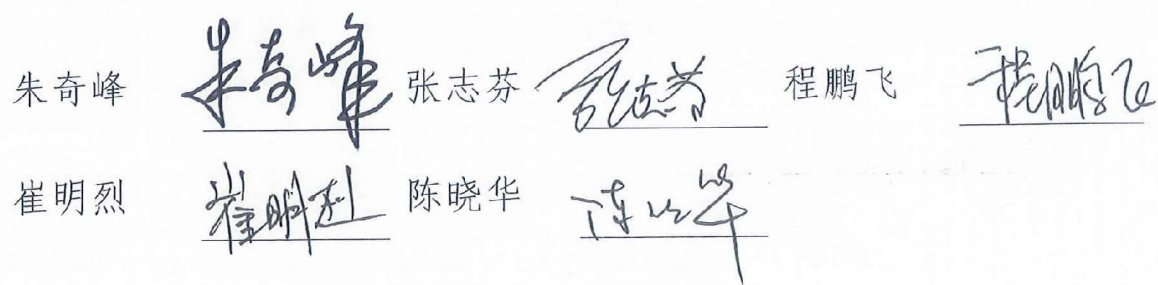 朱奇峰 朱奇峰 张志芬 张志芬 程鹏飞 程鹏飞
崔明烈 崔明烈 陈晓华 陈晓华